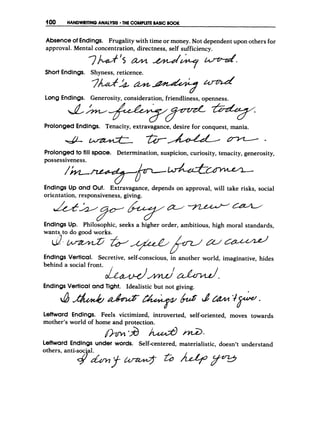 100 HANDWRITING ANALYSIS · THE COMPLETE BASIC BOOK
Absence of Endings. Frugality with time or money. Not dependent upon others for
approval. Mental concentration, directness, self sufficiency.
That's an ending word.
Short Endings. Shyness, reticence.
That's an ending word
Long Endings. Generosity, consideration, friendliness, openness.
I'm feeling good today.
Prolonged Endings. Tenacity, extravagance, desire for conquest, mania.
I want to hold on.
Prolonged to fill space. Determination, suspicion, curiosity, tenacity, generosity,
possessiveness.
I'm ready for what comes
Endings Up and Out. Extravagance, depends on approval, will take risks, social
orientation, responsiveness, giving.
Let's go buy a new car
Endings Up. Philosophic, seeks a higher order, ambitious, high moral standards,
wants to do good works.
I want to yell for a cause
Endings Vertical. Secretive, self-conscious, in another world, imaginative, hides
behind a social front.
Leave me alone.
Endings Vertical and Tight. Idealistic but not giving.
I think about things but I can't give.
Leftward Endings. Feels victimized, introverted, self-oriented, moves towards
mother's world of home and protection.
Don't hurt me.
Leftward Endings under words. Self-centered, materialistic, doesn't understand
others, anti-social.
I don't want to help you